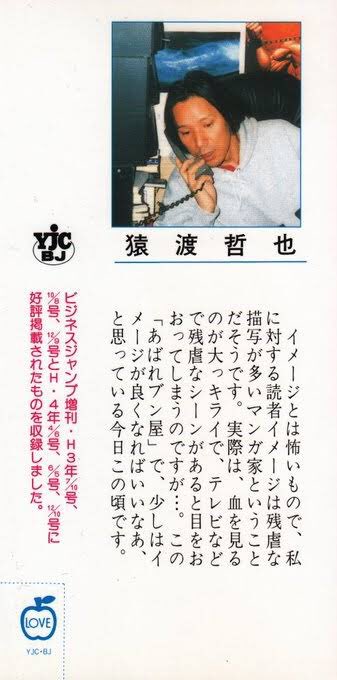 猿渡哲也
イメージとは怖いもので、私
に対する読者イメージは残虐な
描写が多いマンガ家ということ
だそうです。実際は、血を見る
のが大ッキライで、テレビなど
で残虐なシーンがあると目をお
おってしまうのですが…。この
「あばれブン屋」で、少しはイ
メージが良くなればいいなあ、
と思っている今日この頃です。
YJC
BJ
ビジネスジャンプ増刊・H3年7/10号、
10/8号、12/9号とH・4年4/6号、6/5号、12/10号に
好評掲載されたものを収録しました。
LOVE
YJC・BJ